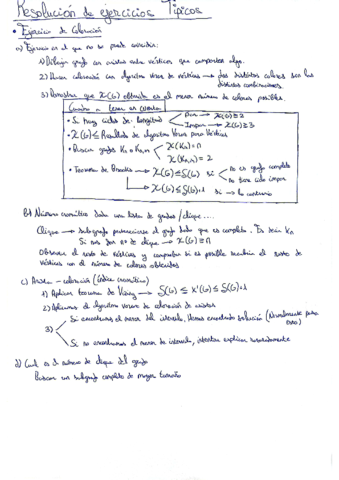 Resolución de ejercicios Típicos
• Ejercicio de Coloración
a) Ejercicio en el que no se puede coincidir:
1) Dibujar grafo con aristas entre vértices que comparten algo.
2) Hacer coloración con algoritmo voraz de vértices → los distintos colores son las distintas combinaciones.
3) Demostrar que X(G) obtenido es el menor número de colores posibles.
• Si hay ciclos de longitud
Par → X(G)≥2
Impar → X(G)≥3
• X(G) ≤ Resultado de algoritmo Voraz para Vértices
• Buscar grafos Kn o Kn,m
X(Kn)=n
X(Kn,m)=2
• Teorema de Brooks
X(G)≤S(G) si
no es grafo completo
no tiene ciclo impar
X(G)≤S(G)+1 si → lo contrario
b) Número cromático dada una lista de grados / clique....
Clique → Subgrafo perteneciente al grafo dado que es completo. Es decir Kn
Si nos dan nº de clique → X(G)≥n
Observar el resto de vértices y comprobar si es posible el resto de vértices con el número de colores obtenidos
c) Arista-coloración (índice cromático)
1) Aplicar teorema de Vizing → S(G) ≤ X'(G) ≤ S(G)+1
2) Aplicamos el algoritmo voraz de coloración de aristas
3)
Si encontramos el menor del intervalo, hemos encontrado solución (Normalmente pasa eso)
Si no encontramos el menor de intervalo, intentar explicar razonadamente
d) Cual es el número de clique del grafo
Buscar un subgrafo completo de mayor tamaño